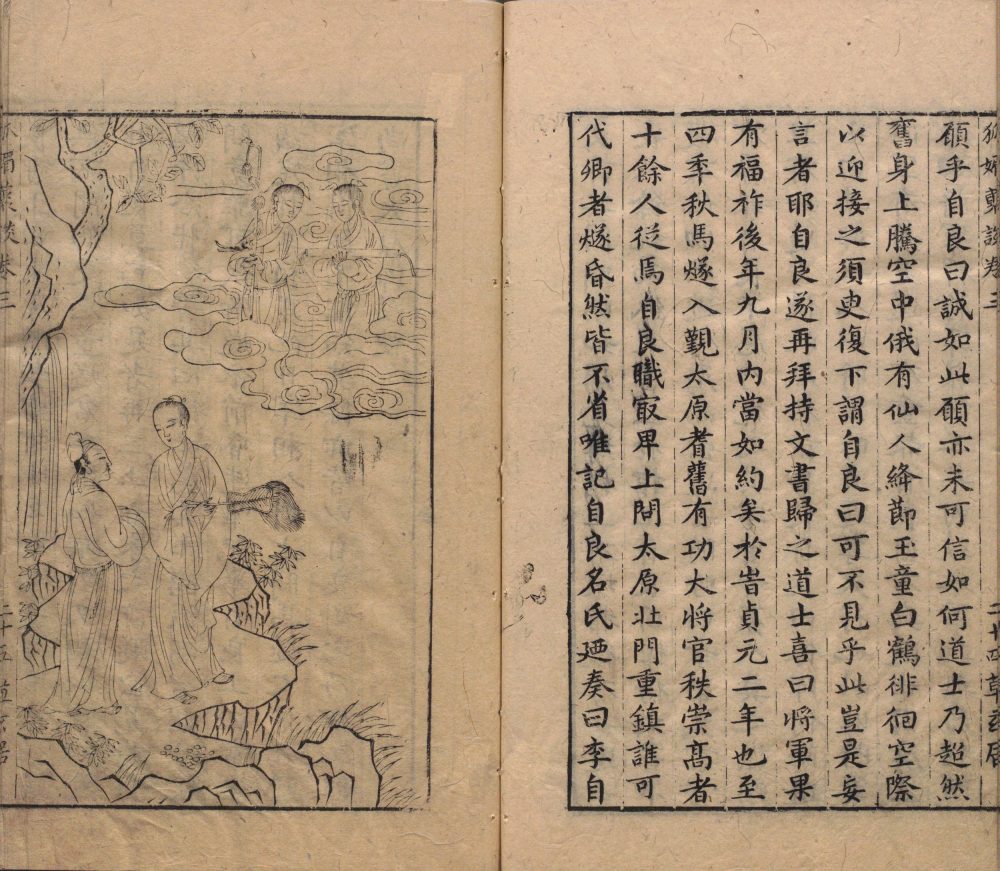 願乎自良曰誠如此願亦未可信如何道士乃超然
奮身上騰空中俄有仙人絳節玉童白鶴徘徊空際
以迎接之須臾復下謂自良曰可不見乎此豈是妄
言者耶自良遂再拜持文書歸之道士喜曰將軍果
有福祚後年九月內當如約矣於旹貞元二年也至
四季秋馬燧入覲太原耆舊有功大將官秩崇高者
十餘人從焉自良職㝡卑上問太原北門重鎮誰可
代卿者燧昏然皆不省唯記自良名氏廼奏曰李自
卷三
二十五